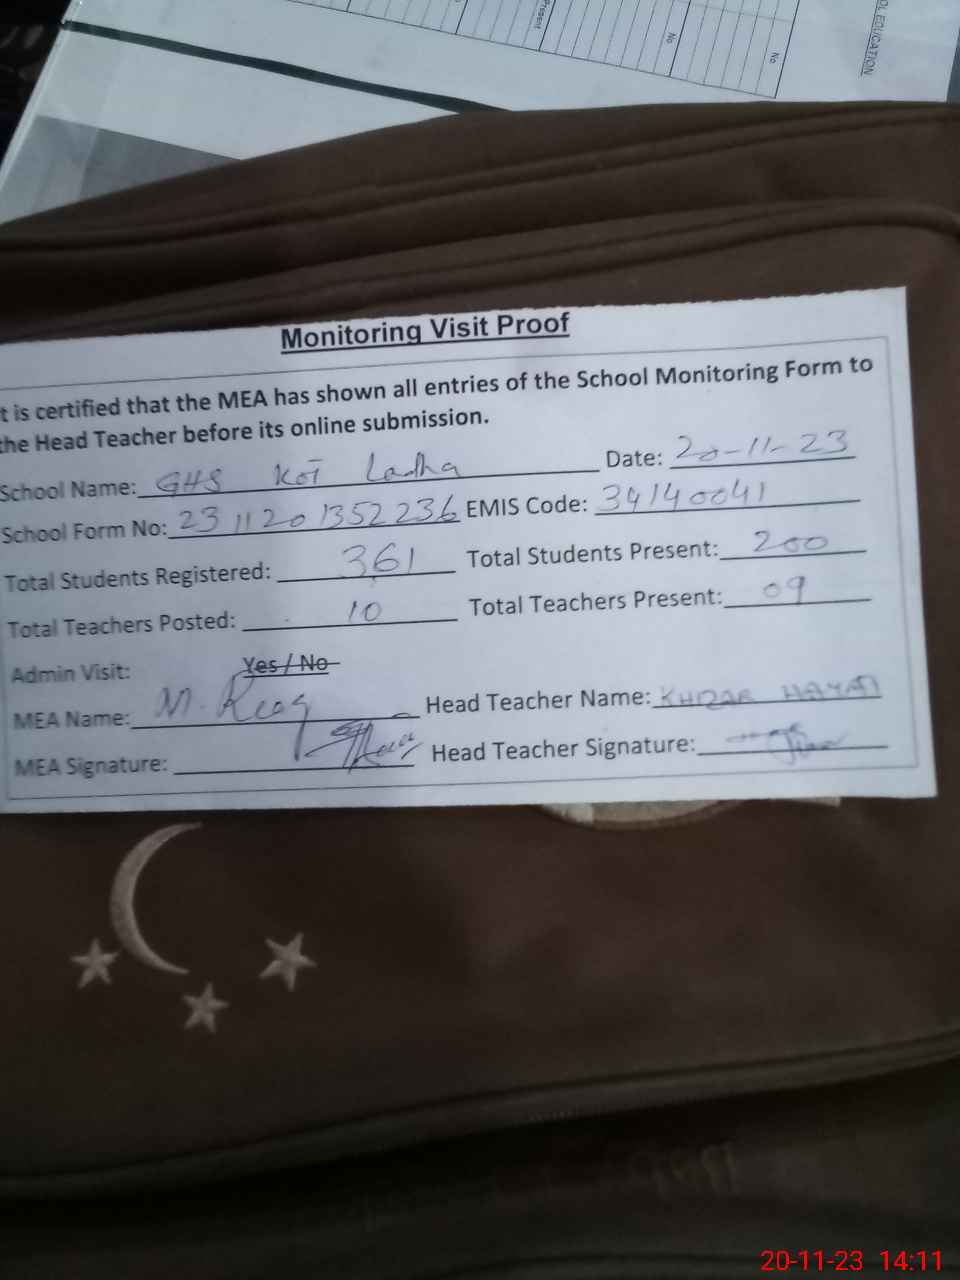 Present
No
No
OL EDUCATION
Monitoring Visit Proof
t is certified that the MEA has shown all entries of the School Monitoring Form to
the Head Teacher before its online submission.
School Name: GHS Kot Ladha Date: 20-11-23
School Form No: 2311201352236 EMIS Code: 34140041
Total Students Registered: 361 Total Students Present: 200
Total Teachers Posted: 10 Total Teachers Present: 09
Admin Visit: Yes / No
MEA Name: M. Reaz Head Teacher Name: KHIZAR HAYAT
MEA Signature: Head Teacher Signature:
20-11-23 14:11